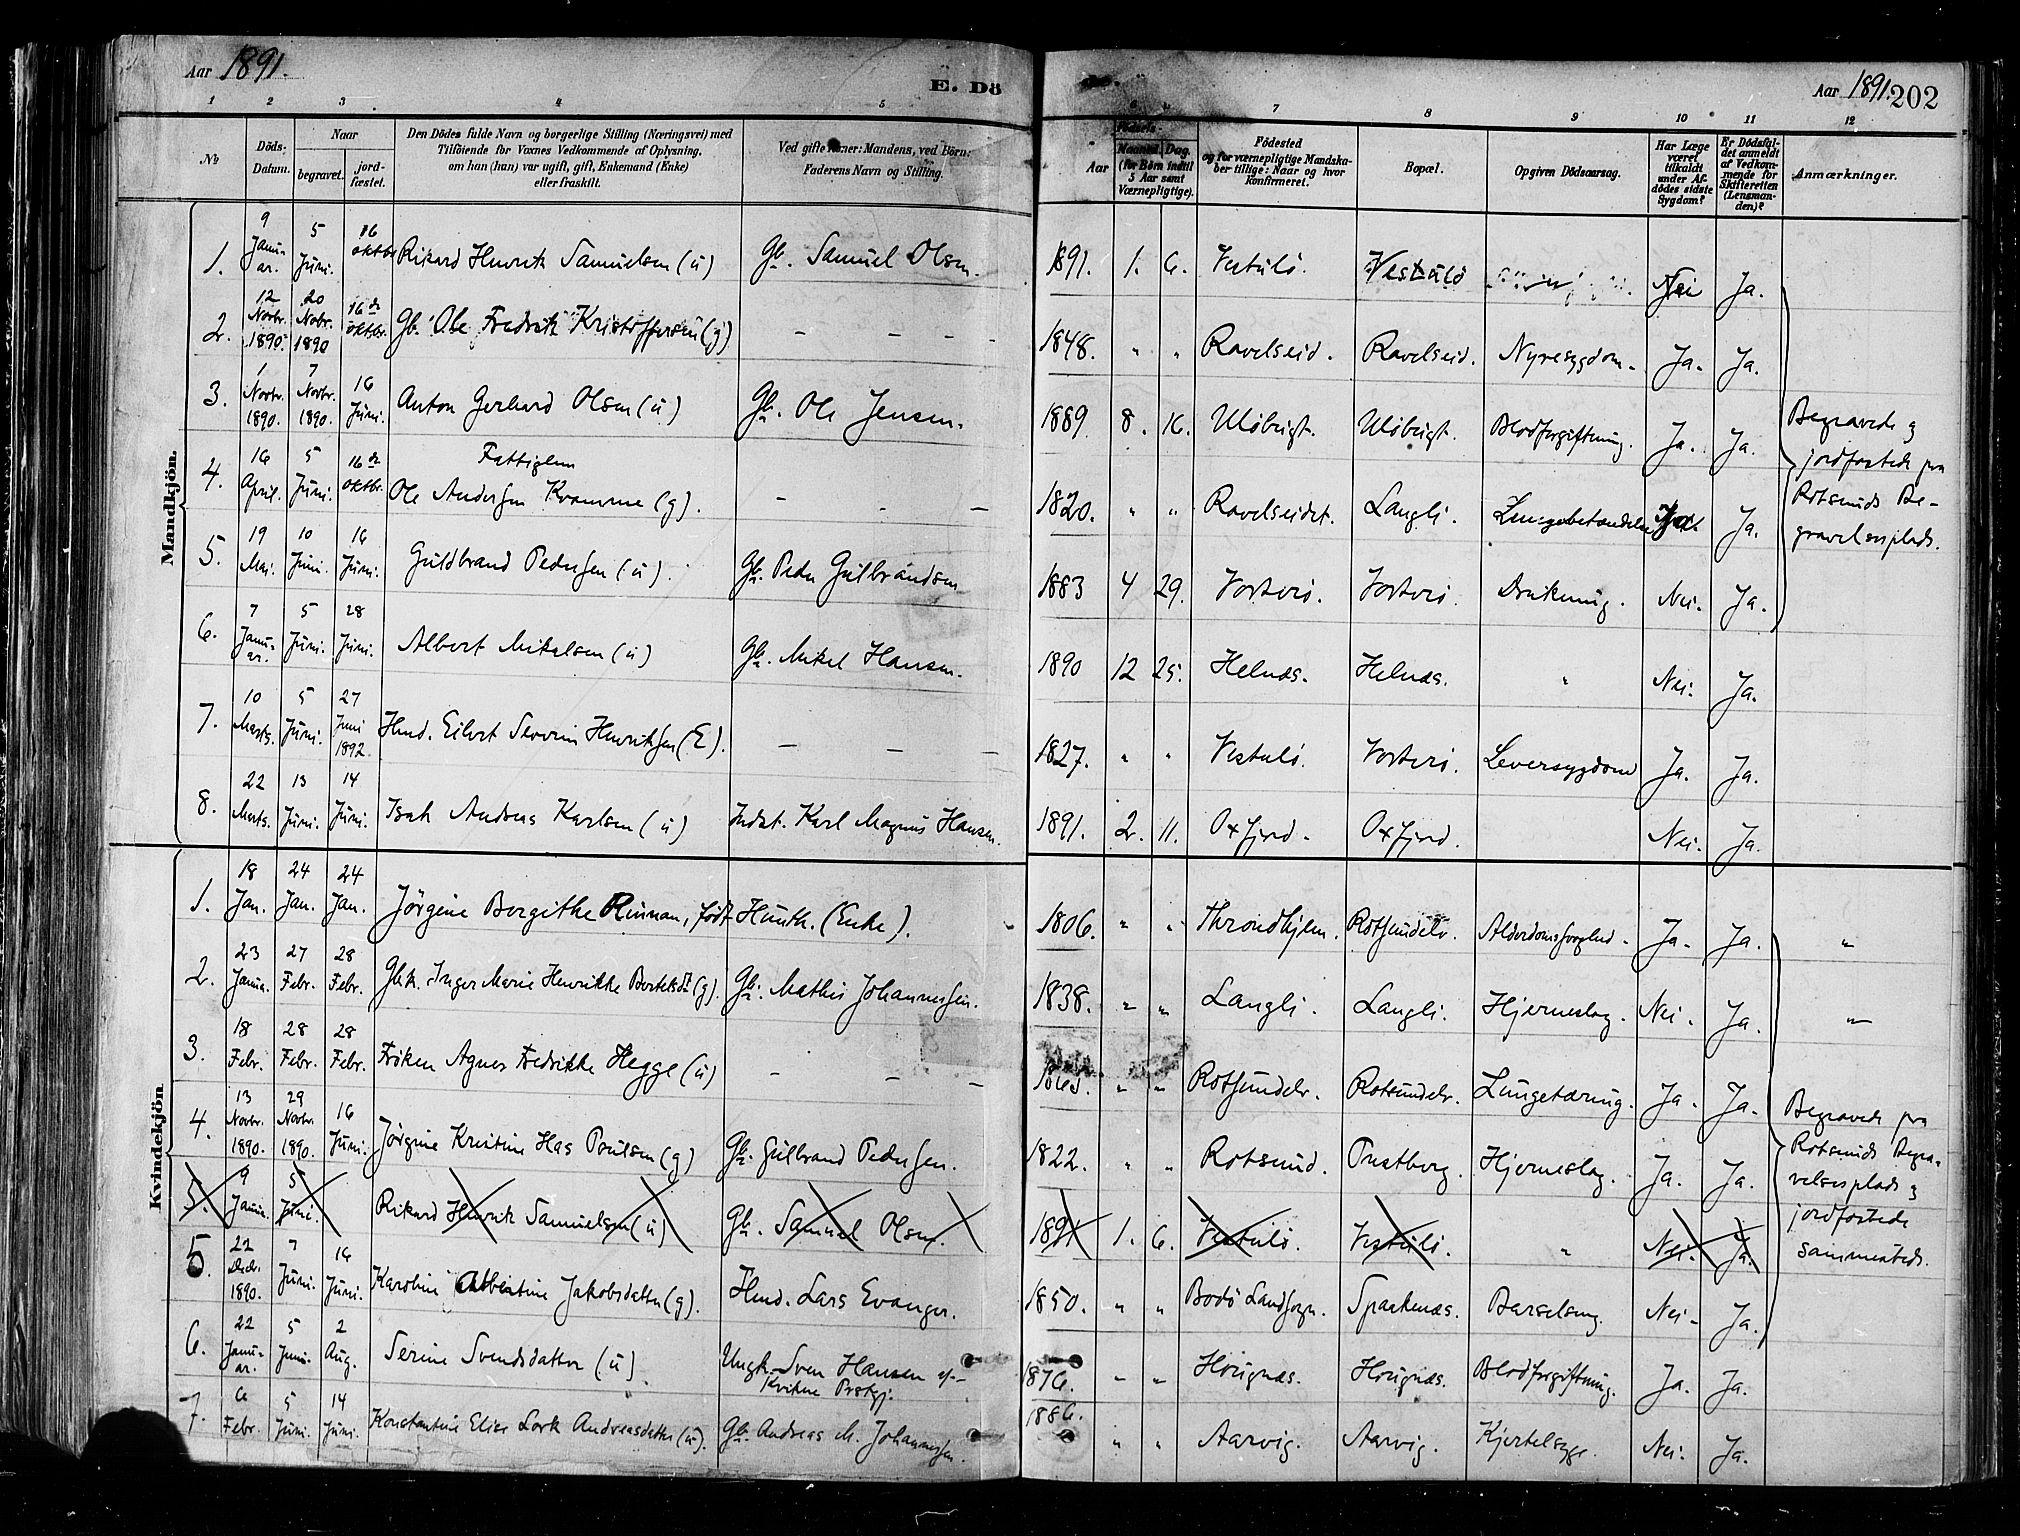 Aar 1891. E. Dö
Aar 1891. 202
1 2 3 4 5 6 7 8 9 10 11 12
No
Döds-Datum.
Naar
begravet.
jord-fæstet.
Den Dödes fulde Navn og borgerlige Stilling (Næringsvei) med
Tilföiende for Voxnes Vedkommende af Oplysning,
om han (hun) var ugift, gift, Enkemand (Enke)
eller fraskilt.
Ved gifte Koner: Mandens, ved Börn:
Faderens Navn og Stilling.
Födsels-
Aar
Maaned. Dag.
(for Börn indtil
5 Aar samt
Værnepligtige).
Födested
og for værnepligtige Mandska-
ber tillige: Naar og hvor
konfirmeret.
Bopæl.
Opgiven Dödsaarsag.
Har Læge
været
tilkaldt
under Af-
dödes sidste
Sygdom?
Er Dödsfal-
det anmeldt
af Vedkom-
mende for
Skifteretten
(Lensman-
den)?
Anmærkninger.
Mandkjön.
1. 9 Janu-ar. 5 Juni. 16 oktbr Rikard Henrik Samuelsen (u) Gbr. Samuel Olsen. 1891. 1. 6. Vestulö. Vestulö Nei Ja.
2. 12 Novbr. 1890. 20 Nobr. 1890 16de oktbr. Gb. Ole Fredrik Kristoffersen (g) – – – 1848. " " Ravelseid. Ravelseid. Nyresygdom. Ja. Ja.
3. 1 Novbr. 1890. 7 Novbr. 1890. 16 Juni. Anton Gerhard Olsen (u) Gbr. Ole Jensen. 1889. 8. 16. Ulöbugt. Ulöbugt. Blodforgiftning. Ja. Ja.
4. 16 April. 5 Juni. 16de oktbr. Fattiglem
Ole Andersen Kramme (g). – – – 1820. " " Ravelseidet. Langli. Lungebetændelse Ja. Ja.
5. 19 Mai. 10 Juni. 16 Juni. Guldbrand Pedersen (u). Gbr. Peder Gulbrandsen. 1883 4 29. Vorterö. Vorterö. Drukning. Nei. Ja.
Begravede og
jordfæstede paa
Rotsunds Be-
gravelsesplads.
6. 7 Janu-ar. 5 Juni. 28 Juni. Albert Mikalsen (u) Gbr. Mikel Hansen. 1890 12 25. Helnæs. Helnæs. " Nei. Ja.
7. 10 Marts. 5 Juni. 27 Juni 1892. Hmd. Eilert Severin Henriksen (E). – – – 1827. " " Vestulö. Vorterö. Leversygdom Ja. Ja.
8. 22 Marts. 13 Juni. 14 Juni. Isak Andreas Karlsen (u) Indst. Karl Magnus Hansen. 1891. 2. 11. Oxfjord. Oxfjord. Nei. Ja.
Kvindekjön
1. 18 Jan. 24 Jan. 24 Jan. Jörgine Borgithe Rinnan, födt Hunth. (Enke). 1806. " " Throndhjem. Rotsundelv. Alderdomssvaghed. Ja. Ja. "
2. 23 Janua. 27 Febr. 28 Febr. Gbk. Inger Marie Henrikke Bertelsdt (g). Gbr. Mathis Johannessen. 1838. " " Langli. Langli. Hjerneslag. Nei. Ja. "
3. 18 Febr. 28 Febr. 28 Febr. Fröken Agnes Fredrikke Hegge (u) – – – " " Rotsundelv. Rotsundelv. Lungetæring. Ja. Ja.
4. 13 Novbr. 1890. 29 Novbr. 1890. 16 Juni. Jörgine Kristine Has Poulsen (g) Gbr. Gulbrand Pedersen. 1822. " " Rotsund. Prestberg. Hjerneslag. Ja. Ja.
5. 9 Janua. 5 Juni. Rikard Henrik Samuelsen (u) Gbr. Samuel Olsen. 1891 1. 6. Vestulö. Vestulö. " Nei. Ja.
Begravede paa
Rotsunds Begra-
velsesplads og
jordfæstede
sammesteds.
5. 22 Decbr. 1890. 7 Juni. 16 Juni. Karoline Albertine Jakobsdatter (g). Hmd. Lars Evanger. 1850. " " Bodö Landsogn. Spaakenæs. Barselseng. Nei. Ja.
6. 22 Janu-ar. 5 Juni. 2 Aug. Serine Svendsdatter (u) Ungk. Sven Hansen
1876. " " Hougnæs. Hougnæs. Blodforgiftning. Ja. Ja.
7. 6 Febr. 5 Juni. 14 Juni. Konstantine Elise Lark Andreasdatter (u). Gbr. Andreas M. Johannessen. 1886. " " Aarvig. Aarvig. Kjertelsyge. Nei. Ja.